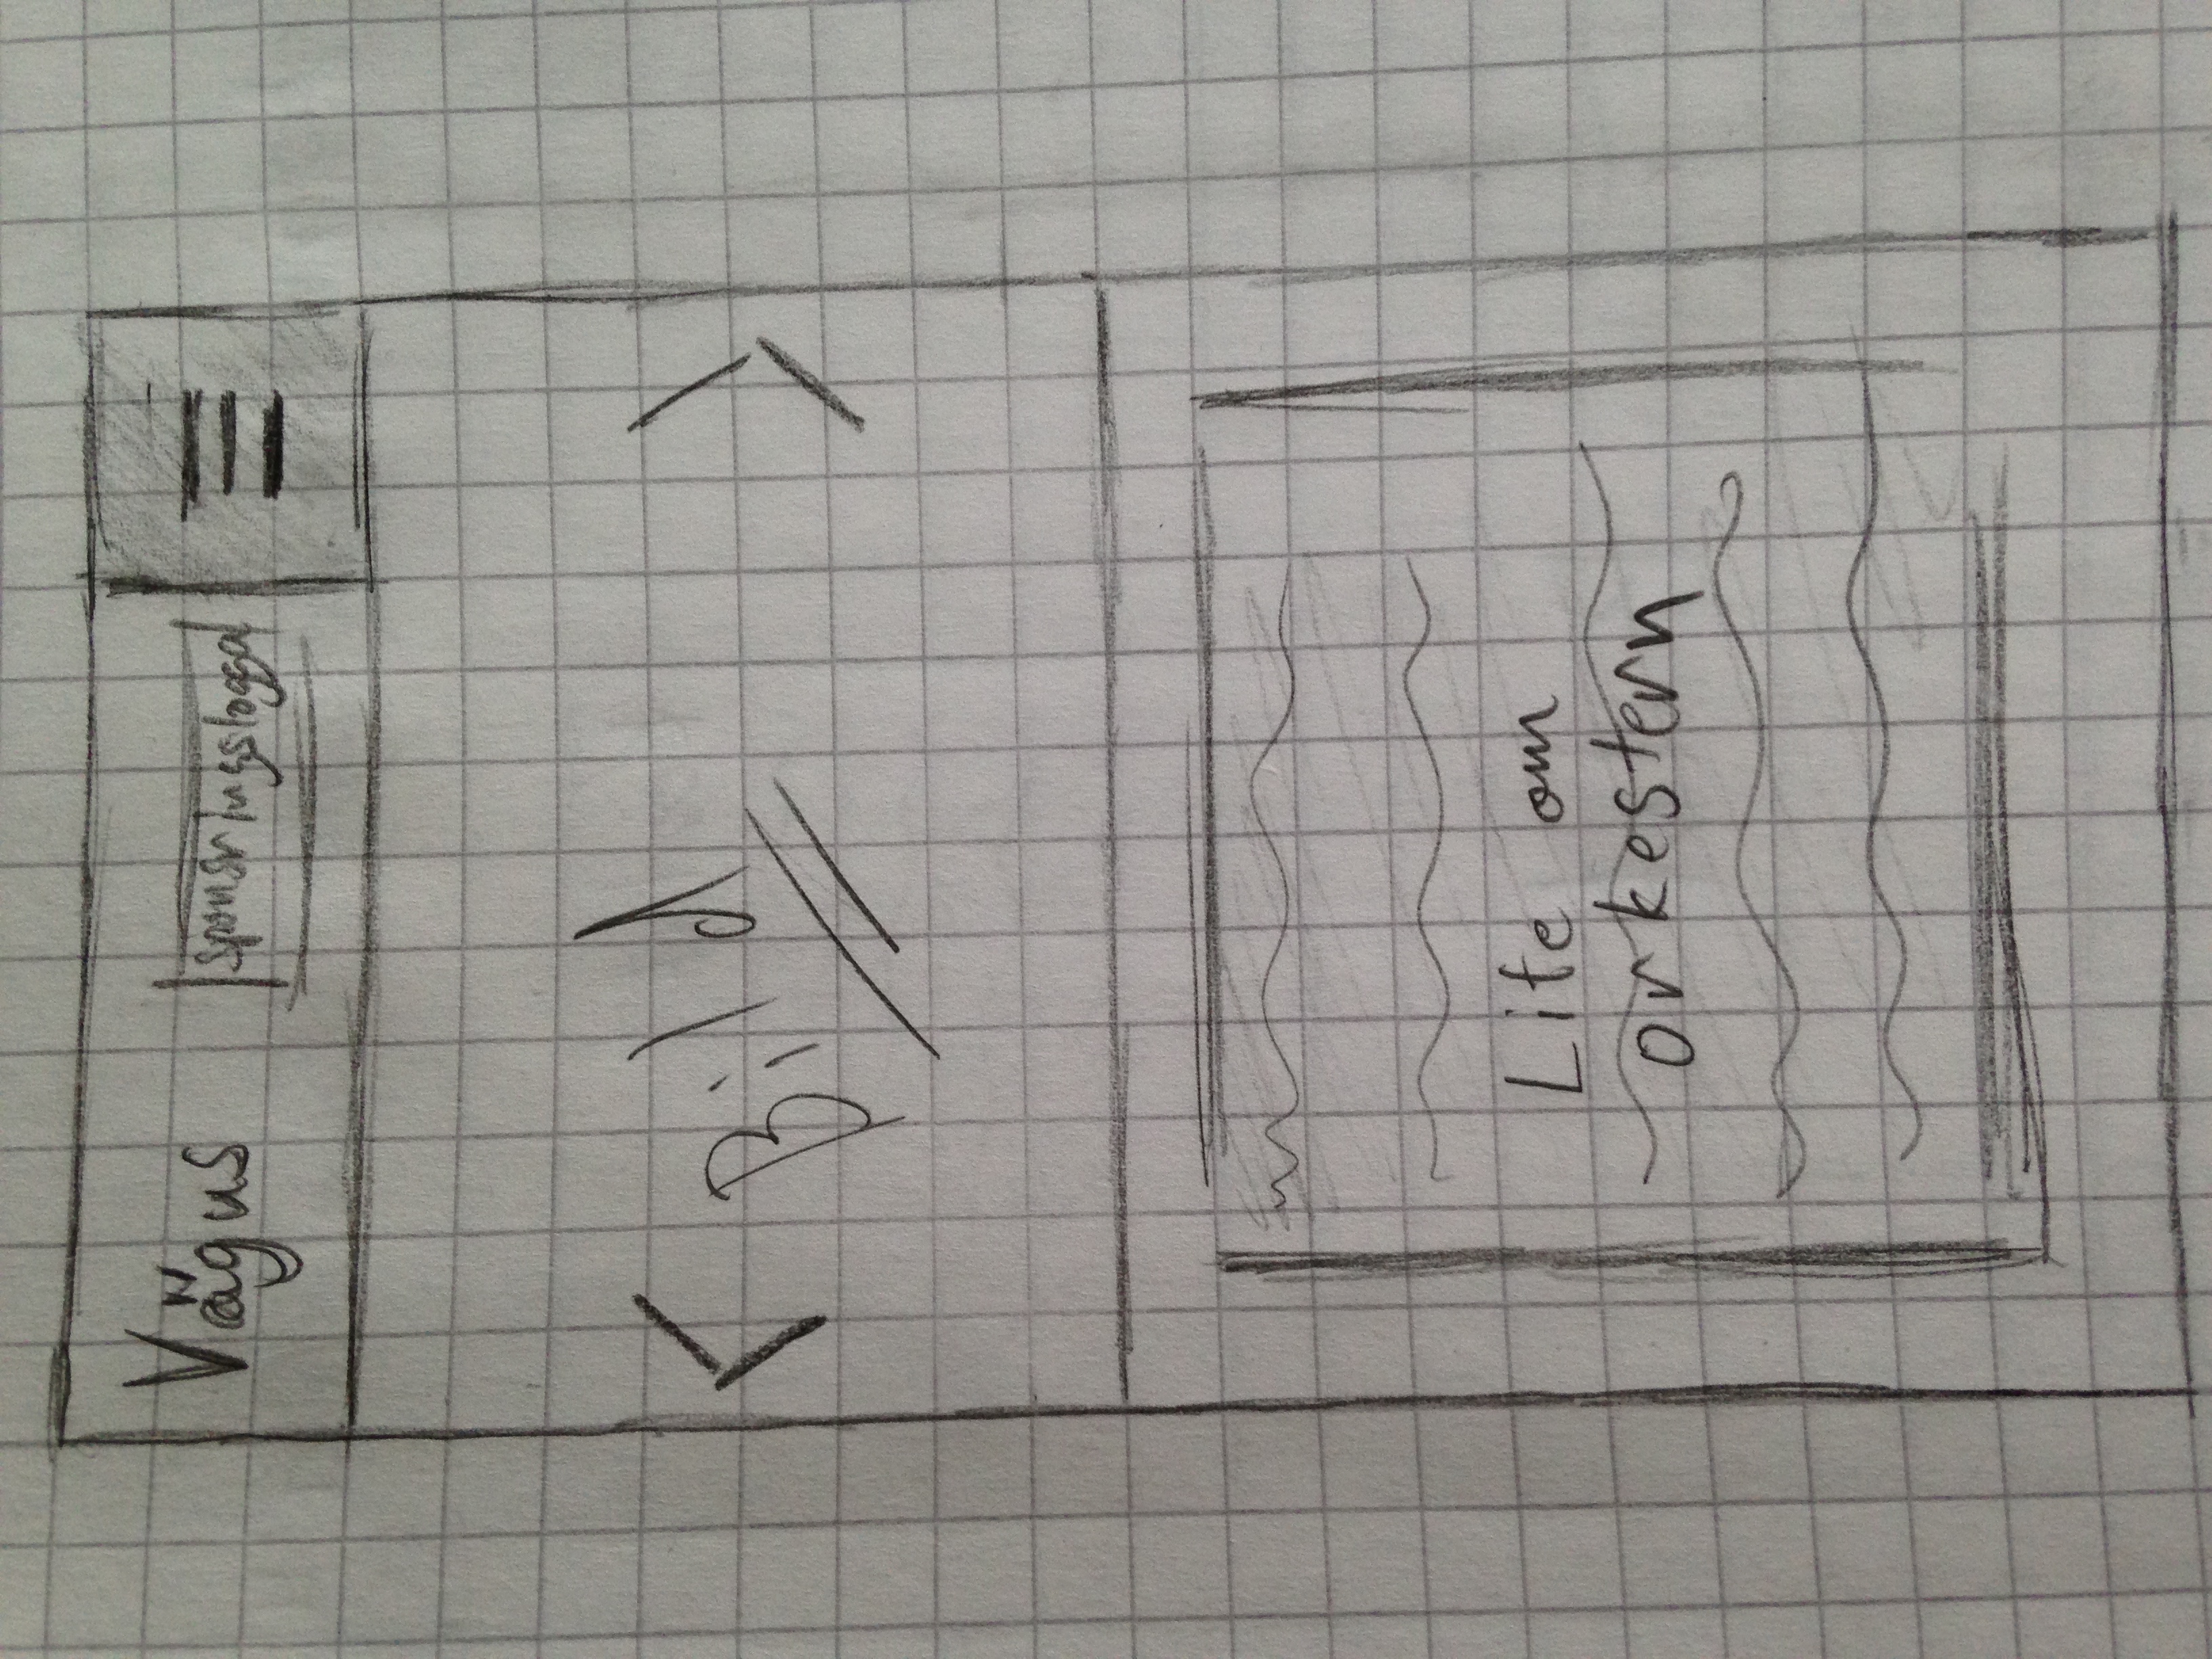 Vägus
sponsringslogga
Bild
Lite om
orkestern